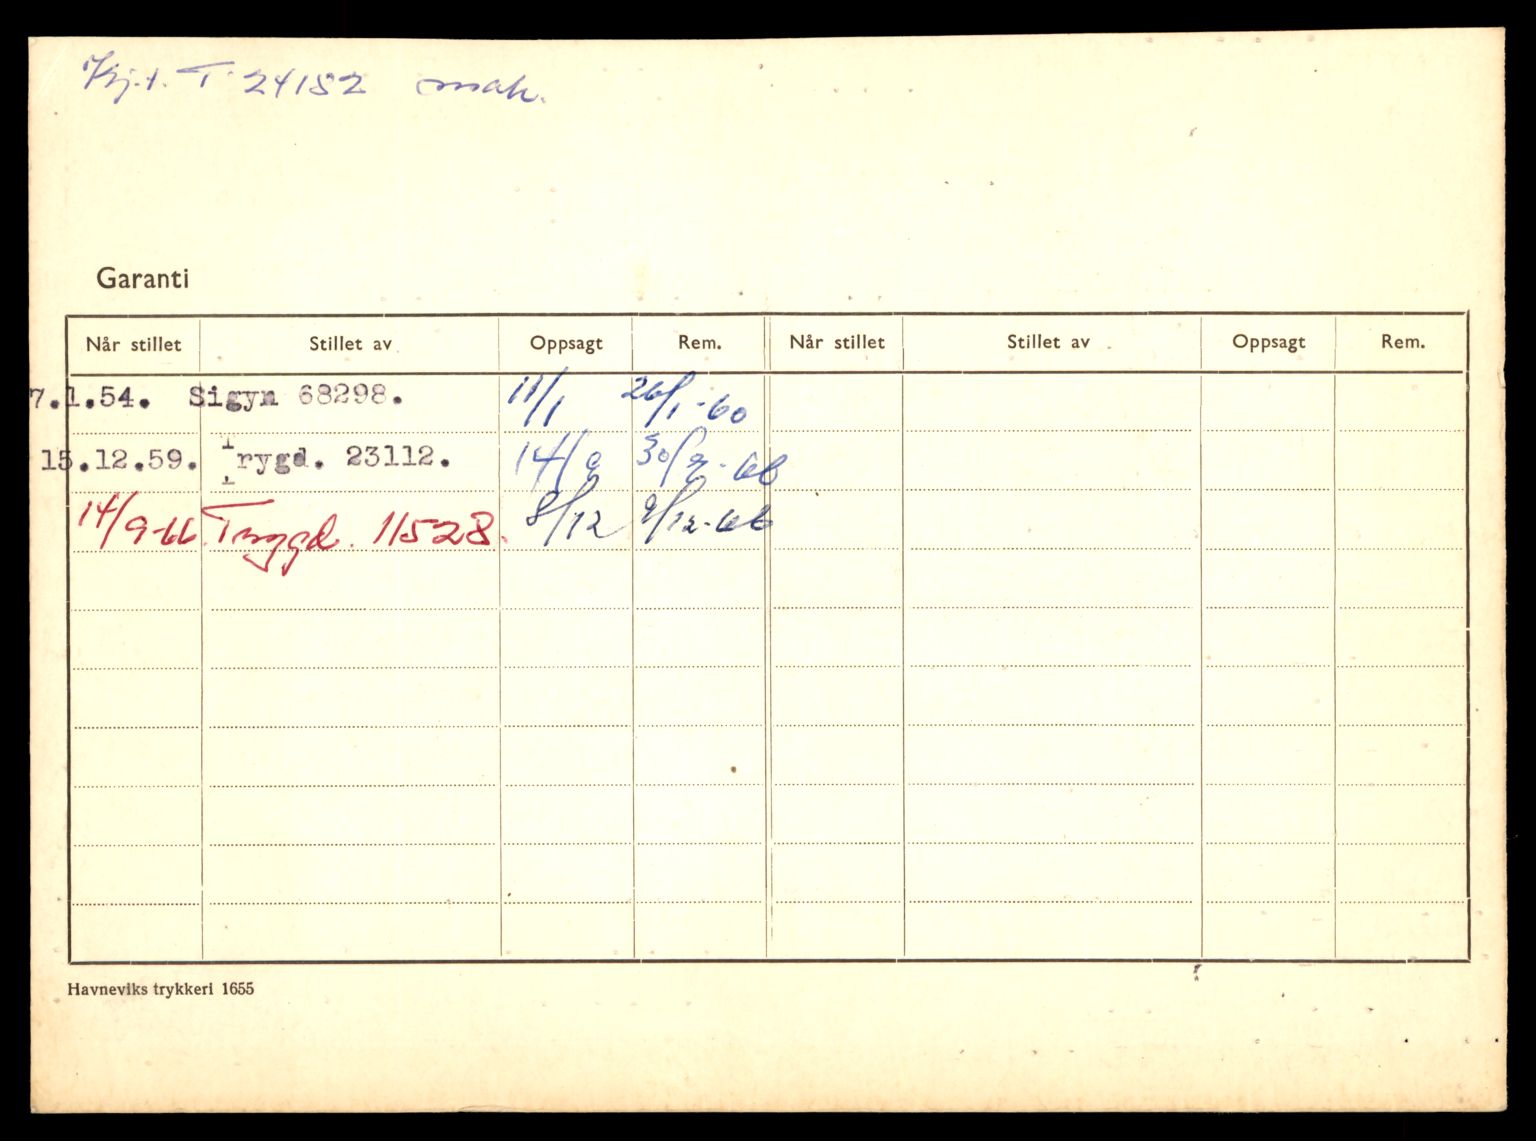 Kj.t. T 24182 mak.
Garanti
Når stillet Stillet av Oppsagt Rem. Når stillet Stillet av Oppsagt Rem.
7.1.54. Sigyn 68298. 11/1 26/1-60
15.12.59. Trygd. 23112. 14/9 30/9-66
14/9-66 Trygd. 11528. 8/12 9/12-66
Havneviks trykkeri 1655